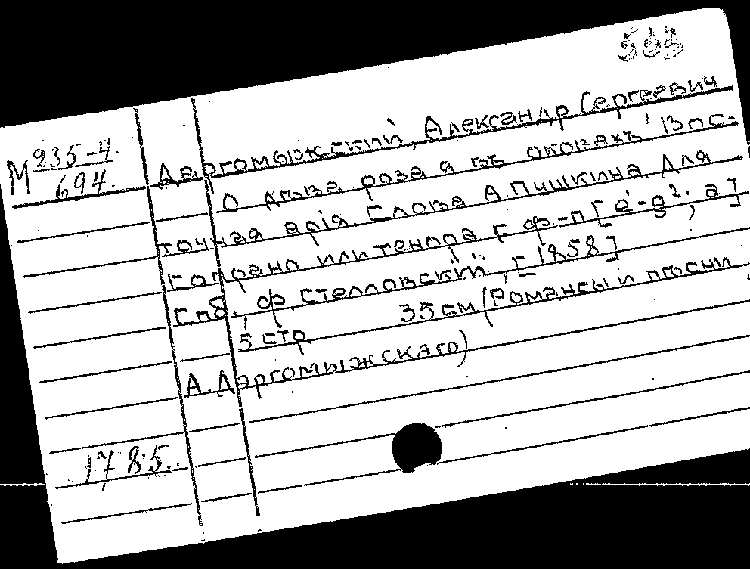 503
М 235-4
694.
Даргомыжский, Александр Сергеевич
О дева роза я въ оковахъ! Вос-
точная арія. Слова А. Пушкина. Для
сопрано или тенора с ф.-п [e¹-g², a]
Спб., Ф. Стелловский, [1858]
5 стр 35 см (Романсы и песни
А. Даргомыжскаго)
1785.